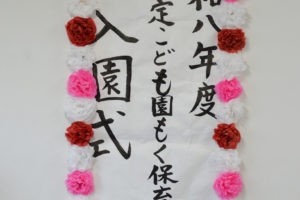 和八年度
定こども園もく保育
入園式